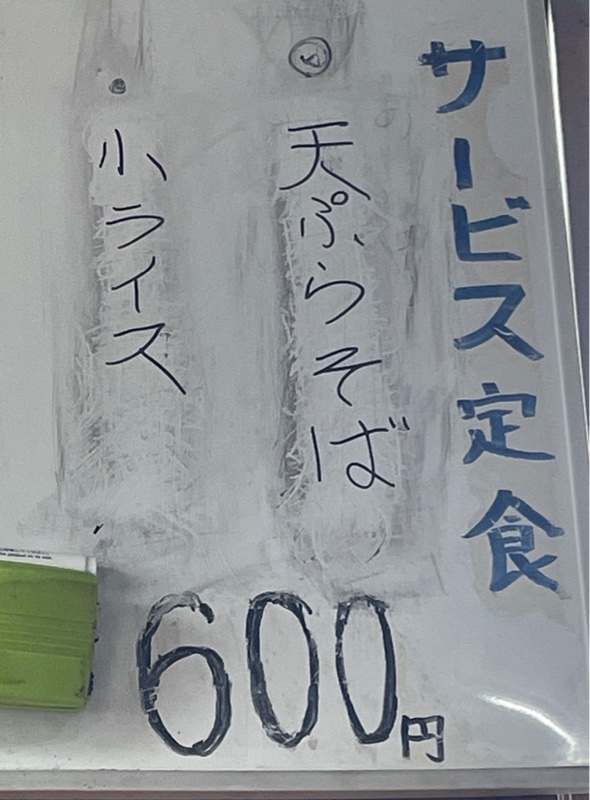 サービス定食
天ぷらそば
小ライス
600円